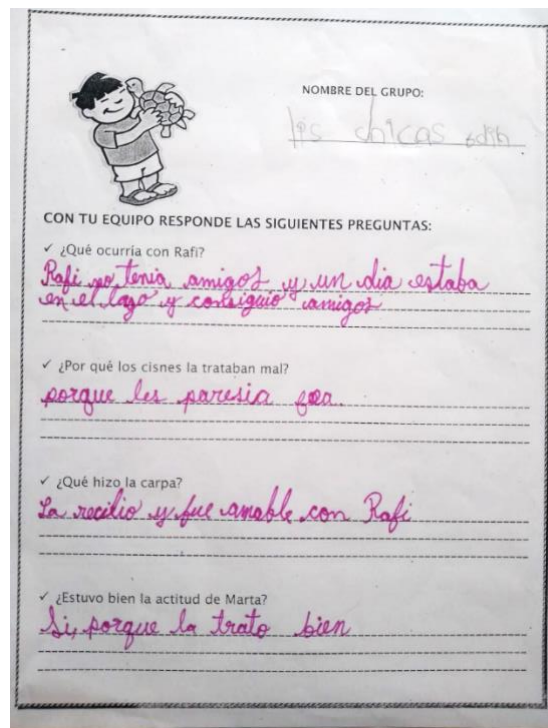 NOMBRE DEL GRUPO:
las chicas
CON TU EQUIPO RESPONDE LAS SIGUIENTES PREGUNTAS:
✓ ¿Qué ocurría con Rafi?
Rafi no tenia amigos y un dia estaba
en el lago y consiguio amigos
✓ ¿Por qué los cisnes la trataban mal?
porque les paresia fea
✓ ¿Qué hizo la carpa?
La recilio y fue amable con Rafi
✓ ¿Estuvo bien la actitud de Marta?
Si, porque la trato bien